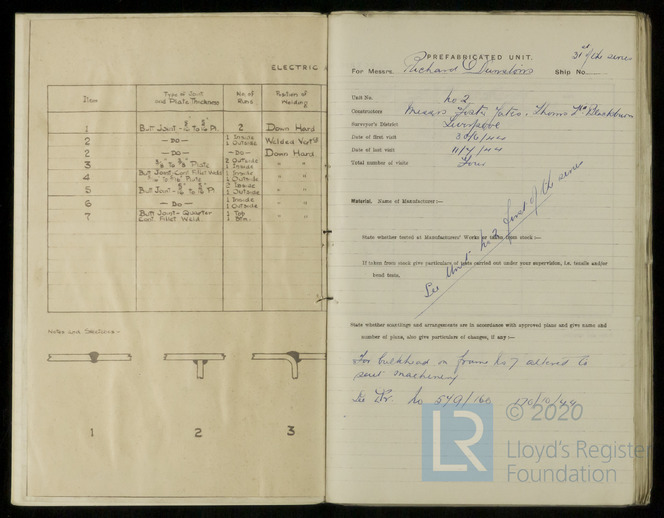 ELECTRIC
Item
Type of Joint and Plate Thickness
No. of Runs
Position of Welding
1
2
Down Hand
2
- DO -
1 Inside
1 Outside
Welded Vert
2
- DO -
- DO -
Down Hand
3
Plate
2 Outside
1 Inside
" "
4
Plate
1 Inside
1 Outside
" "
5
2 Inside
1 Outside
" "
6
- DO -
1 Inside
1 Outside
" "
7
Butt Joint - Quarter
Cont. Fillet Weld
1 Top
1 Btm.
" "
1
2
3
31st of the series
PREFABRICATED UNIT.
For Messrs. Richard Dunston's Ship No.
Unit No. No 2
Constructors Messrs Foster, Yates, & Thom Ltd Blackburn
Surveyor's District Liverpool
Date of first visit 30/6/44
Date of last visit 11/7/44
Total number of visits Four
Material. Name of Manufacturer :—
State whether tested at Manufacturers' Works or taken from stock :—
If taken from stock give particulars of tests carried out under your supervision, i.e. tensile and/or
bend tests.
See Unit No 2 first of the series
State whether scantlings and arrangements are in accordance with approved plans and give name and
number of plans, also give particulars of changes, if any :—
For bulkhead on frame No 7 altered to
suit machinery
No 549/160
© 2020
LR
Lloyd's Register
Foundation